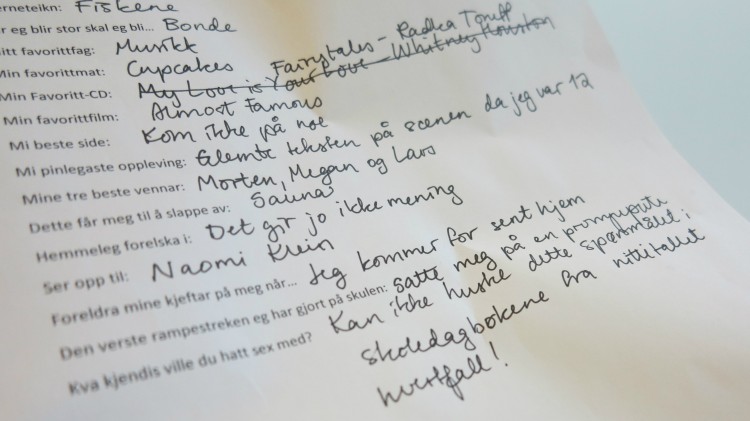 erneteikn: Fiskene
r eg blir stor skal eg bli... Bonde
itt favorittfag: Musikk
Min favorittmat: Cupcakes
Fairytales - Radka Toneff
Min Favoritt-CD: My Love is Your Love - Whitney Houston
Min favorittfilm: Almost Famous
Mi beste side: Kom ikke på noe
Mi pinlegaste oppleving: Glemte teksten på scenen da jeg var 12
Mine tre beste vennar: Morten, Megan og Lars
Dette får meg til å slappe av: Sauna
Hemmeleg forelska i: Det gir jo ikke mening
Ser opp til: Naomi Klein
Foreldra mine kjeftar på meg når... Jeg kommer for sent hjem
Den verste rampestreken eg har gjort på skulen: Satte meg på en prompepute
Kva kjendis ville du hatt sex med? Kan ikke huske dette spørsmålet i
skoledagbøkene fra nittitallet
hvertfall!